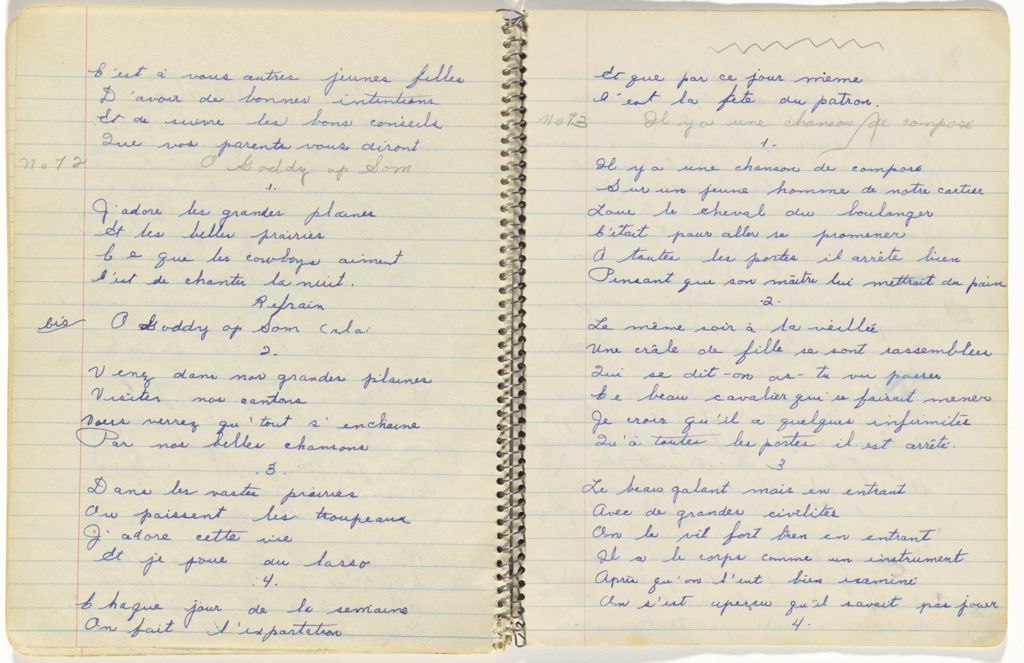 C'est à vous autres jeunes filles
D'avoir de bonnes intentions
Et de suivre les bons conseils
Que vos parents vous diront
No 12 O Goddy op Som
1.
J'adore les grandes plaines
Et les belles prairies
Ce que les cowboys aiment
C'est de chanter la nuit.
Refrain
bis O Goddy op Som (rla:
2.
Venez dans nos grandes plaines
Visiter nos cantons
Vous verrez qu'tout s'enchaine
Par nos belles chansons
3.
Dans les vastes prairies
Ou paissent les troupeaux
J'adore cette vie
Et je joue du lasso
4.
Chaque jour de la semaine
On fait l'exportation
Et que par ce jour mieme
C'est la fete du patron.
No 13 Il y a une chanson de compose
1.
Il y a une chanson de compose
Sur un jeune homme de notre cartier
Loue le cheval du boulanger
C'était pour aller se promener
A toutes les portes il arrête bien
Pensant que son maître lui mettrait du pain
2.
Le même soir à la veillée
Une crâle de fille se sont rassemblées
Qui se dit-on as-tu vu passer
Ce beau cavalier qui se faisait mener
Je crois qu'il a quelques infirmités
Qu'à toutes les portes il est arrêté.
3
Le beau galant mais en entrant
Avec de grandes civilités
On le vit fort bien en entrant
Il a le corps comme un instrument
Après qu'on l'eut bien examiné
On s'est aperçu qu'il savait pas jouer
4.